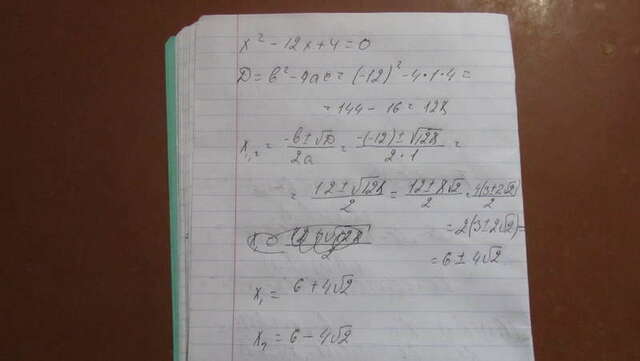 x² - 12x + 4 = 0
D = b² - 4ac = (-12)² - 4·1·4 =
= 144 - 16 = 128
x₁,₂ = (-b ± √D)/2a = (-(-12) ± √128)/2·1 =
= (12 ± √128)/2 = (12 ± 8√2)/2 = 4(3 ± 2√2)/2
= 2(3 ± 2√2) =
= 6 ± 4√2
x₁ = 6 + 4√2
x₂ = 6 - 4√2